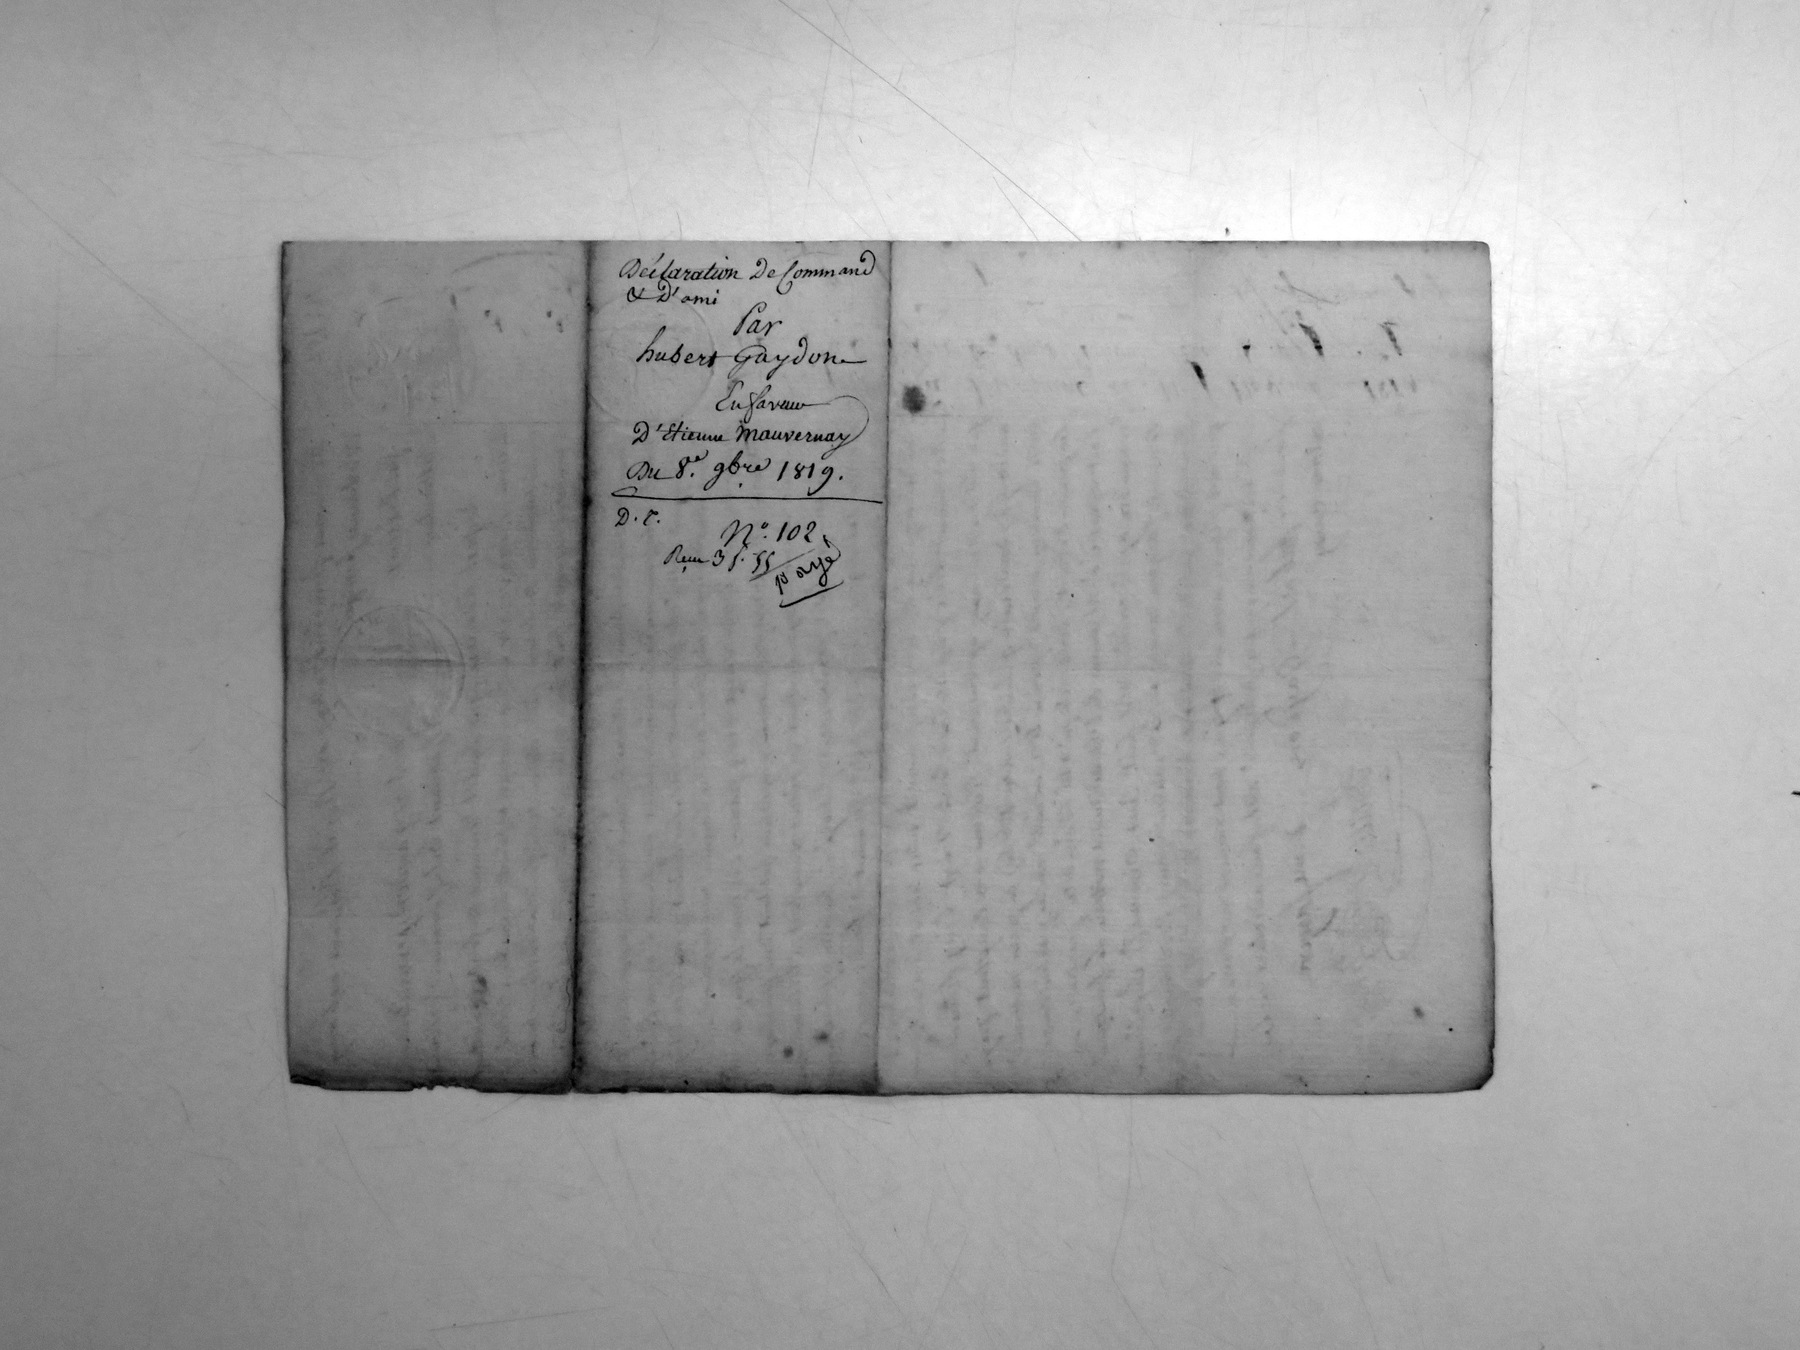 Déclaration De Command
& D'ami
Par
hubert Gaydon
En faveur
D'Etienne Mauvernay
Du 8.e 9bre 1819.
D. r.
N.o 102.
Reçu 3 f. 55
payé